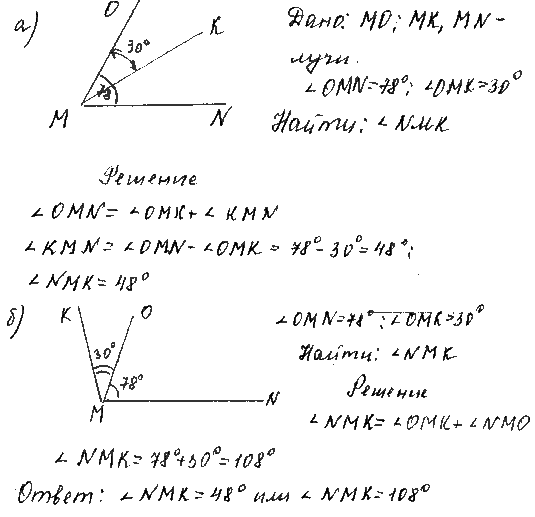 а)
O
K
30°
78
M
N
Дано: MO; MK, MN-
лучи.
∠OMN=78°; ∠OMK=30°
Найти: ∠NMK
Решение
∠OMN=∠OMK+∠KMN
∠KMN=∠OMN-∠OMK=78°-30°=48°;
∠NMK=48°
б)
K
O
30°
78°
M
N
∠OMN=78°; ∠OMK=30°
Найти: ∠NMK
Решение
∠NMK=∠OMK+∠NMO
∠NMK=78°+30°=108°
Ответ: ∠NMK=48° или ∠NMK=108°